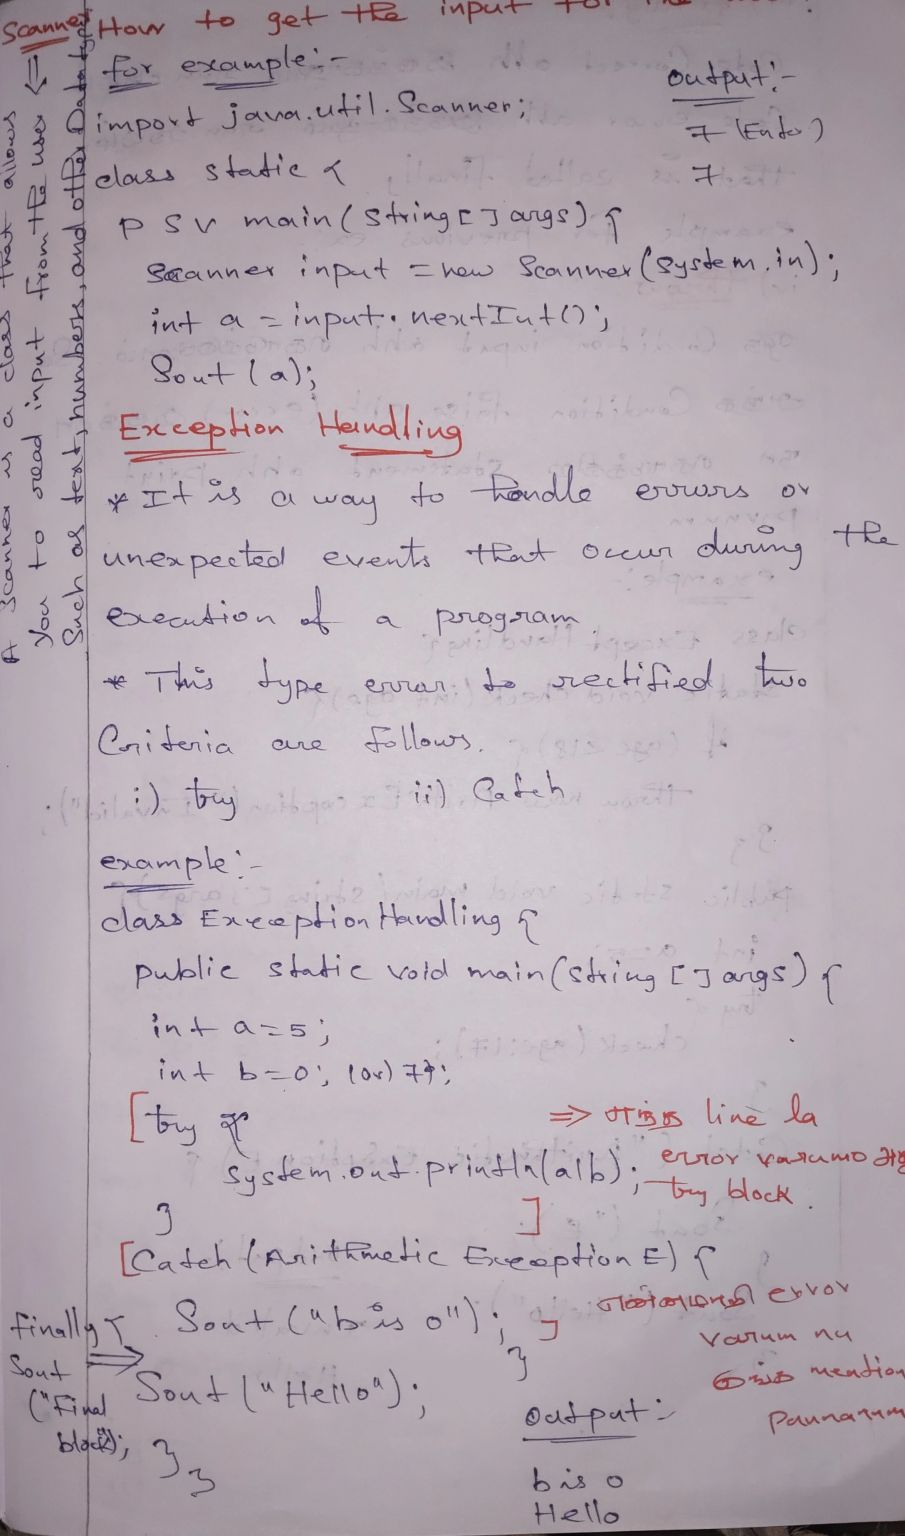 Scanner How to get the input for the
for example:-
output:-
import java.util.Scanner;
7 (Enter)
class static {
7
P S V main(String[] args) {
Scanner input = new Scanner(System.in);
int a = input.nextInt();
Sout(a);
A Scanner is a class that allows
You to read input from the user
Such as text, numbers, and other Data type
Exception Handling
* It is a way to handle errors or
unexpected events that occur during the
execution of a program.
* This type error to rectified two
Criteria are follows.
i) try ii) Catch
example:-
class Exception Handling {
public static void main(String [] args) {
int a=5;
int b=0; (or) 7;
[try {
⇒ எந்த line la
System.out.println(a/b);
error varumo
try block.
} ]
[Catch (Arithmetic Exception E) {
Sout ("b is 0"); ]
}
என்னமாதி error
varum nu
இங்க mention
pannanum
finally {
Sout
("Final
block");
Sout ("Hello");
}
}
output:-
b is 0
Hello